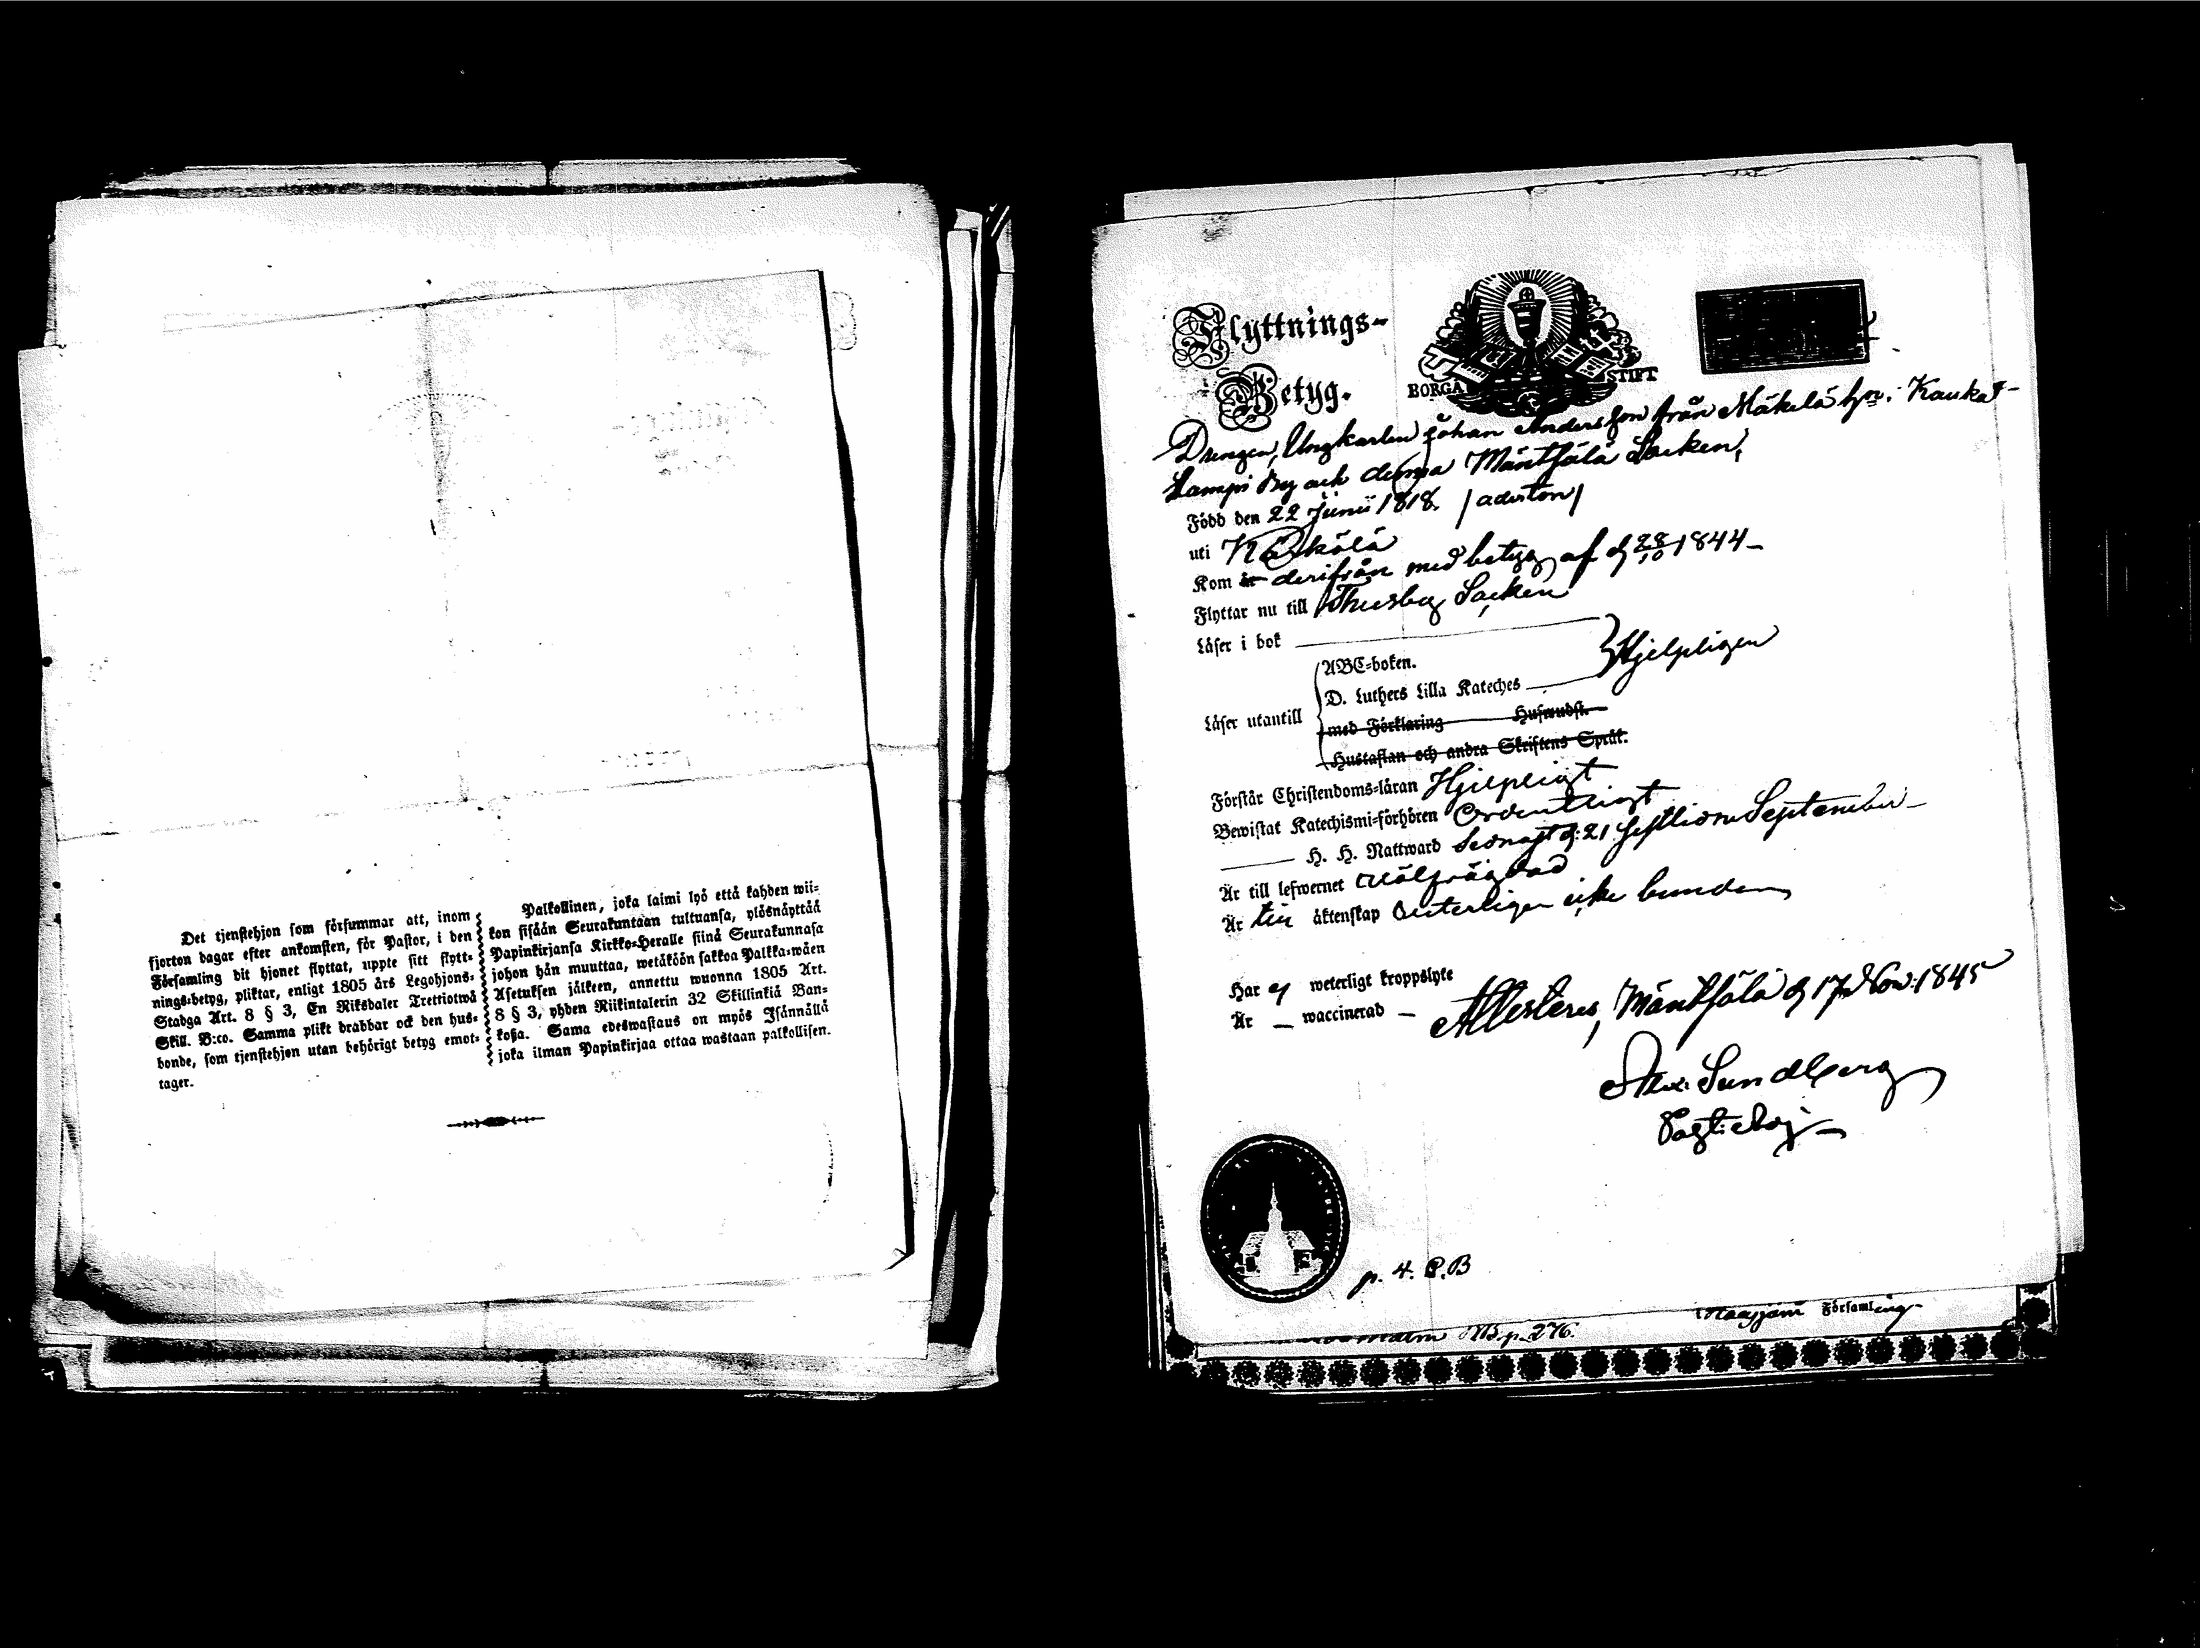 Det tjenstehjon som försummar att, inom
fjorton dagar efter ankomsten, för Pastor, i den
Församling dit hjonet flyttat, uppte sitt flytt-
nings-betyg, pliktar, enligt 1805 års Legohjons-
Stadga Art. 8 § 3, En Riksdaler Trettiotwå
Skill. B:co. Samma plikt drabbar ock den hus-
bonde, som tjenstehjon utan behörigt betyg emot-
tager.
Palkollinen, joka laimi lyö että kahden wii-
kon sisään Seurakuntaan tultuansa, ylösnäyttää
Papinkirjansa Kirkko-Heralle siinä Seurakunnasa
johon hän muuttaa, wetäköön sakkoa Palkka-wäen
Asetuksen jälkeen, annettu wuonna 1805 Art.
8 § 3, yhden Riikintalerin 32 Skillinkiä Ban-
koßa. Sama edeswastaus on myös Isännällä
joka ilman Papinkirjaa ottaa wastaan palkollisen.
Flyttnings-
Betyg.
BORGÅ STIFT
Drengen, Ungkarlen Johan Andersson från Mäkelä hn: i Kauka-
Lampi By och denna Mäntsälä Socken,
Född den 22 Junii 1818. /aderton/
uti Kärkölä
Kom är derifrån med betyg af d 28/10 1844 –
Flyttar nu till Thusby Socken
Läser i bok
ABC-boken.
Läser utantill D. Luthers Lilla Kateches Hjelpligen
med Förklaring
Hustaflan och andra Skriftens Språk.
Förstår Christendoms-läran Hjelpligt
Bewistat Katechismi-förhören Ordentligt
H. H. Nattward Sednast d: 21 sistlidne September –
Är till lefwernet wälfrägdad
Är till äktenskap weterligen icke bunden
Har ej weterligt kroppslyte
Är – waccinerad –
Attesteras, Mäntsälä d 17 Nov: 1845
Alex: Sundberg
p. 4. C.B
p. 276.
Församling